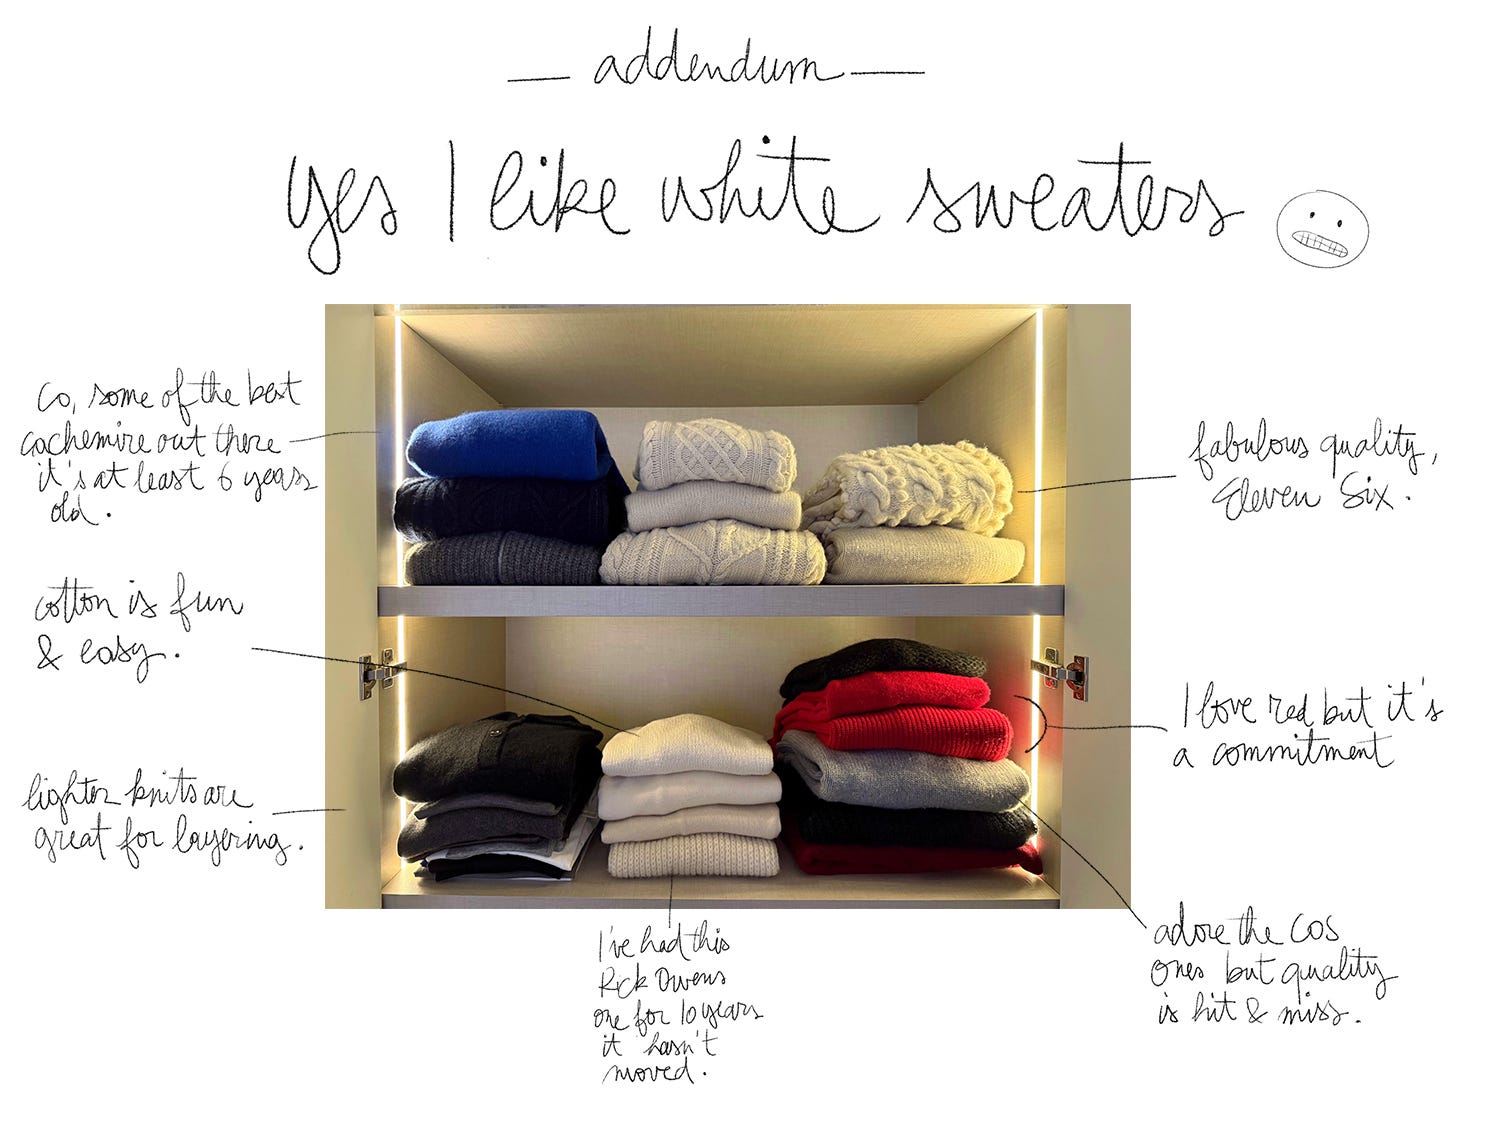 — addendum —
yes I like white sweaters
Co, some of the best
cachemire out there
it's at least 6 years
old.
fabulous quality,
Eleven Six.
cotton is fun
& easy.
I love red but it's
a commitment
lighter knits are
great for layering.
I've had this
Rick Owens
one for 10 years
it hasn't
moved.
adore the COS
ones but quality
is hit & miss.